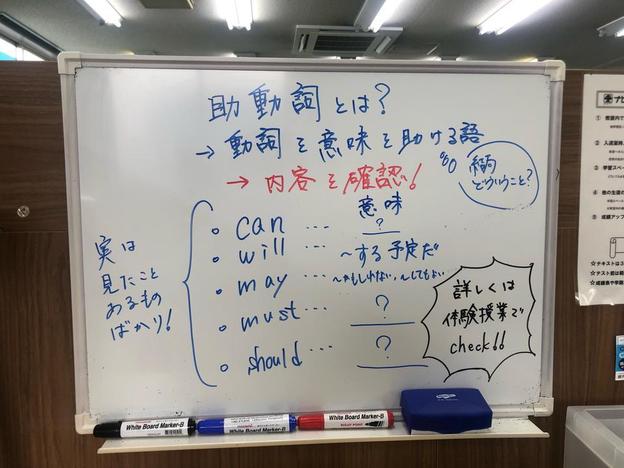 助動詞とは?
→ 動詞を意味を助ける語
→ 内容を確認!
結局どういうこと?
意味
・can … ?
・will … 〜する予定だ
・may … 〜かもしれない, 〜してもよい
・must … ?
・should … ?
実は
見たこと
あるもの
ばかり!
詳しくは
体験授業で
check!!
White Board Marker-B
White Board Marker-B
White Board Marker-B